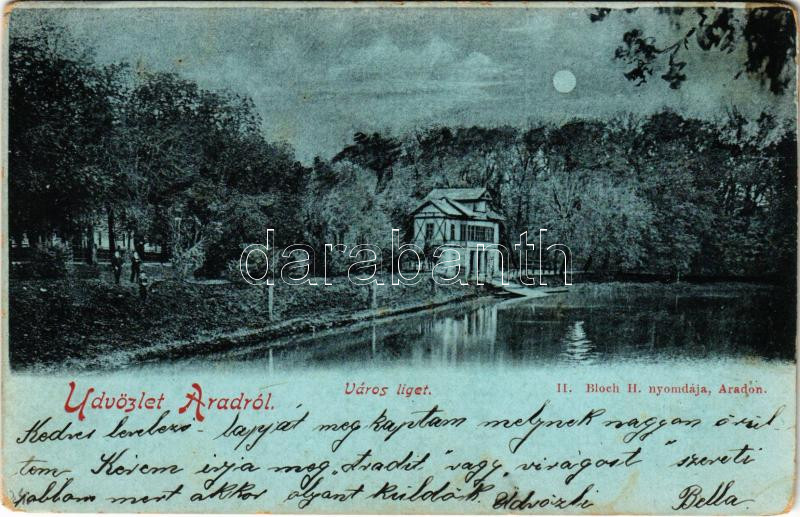 darabanth
Üdvözlet Aradról.
Város liget.
II. Bloch H. nyomdája, Aradon.
Kedves levelező-lapját meg kaptam melynek nagyon örül-
tem Kérem irja meg „tradit" vagy „virágost" szereti
jobban mert akkor olyant küldök. Üdvözli Bella.